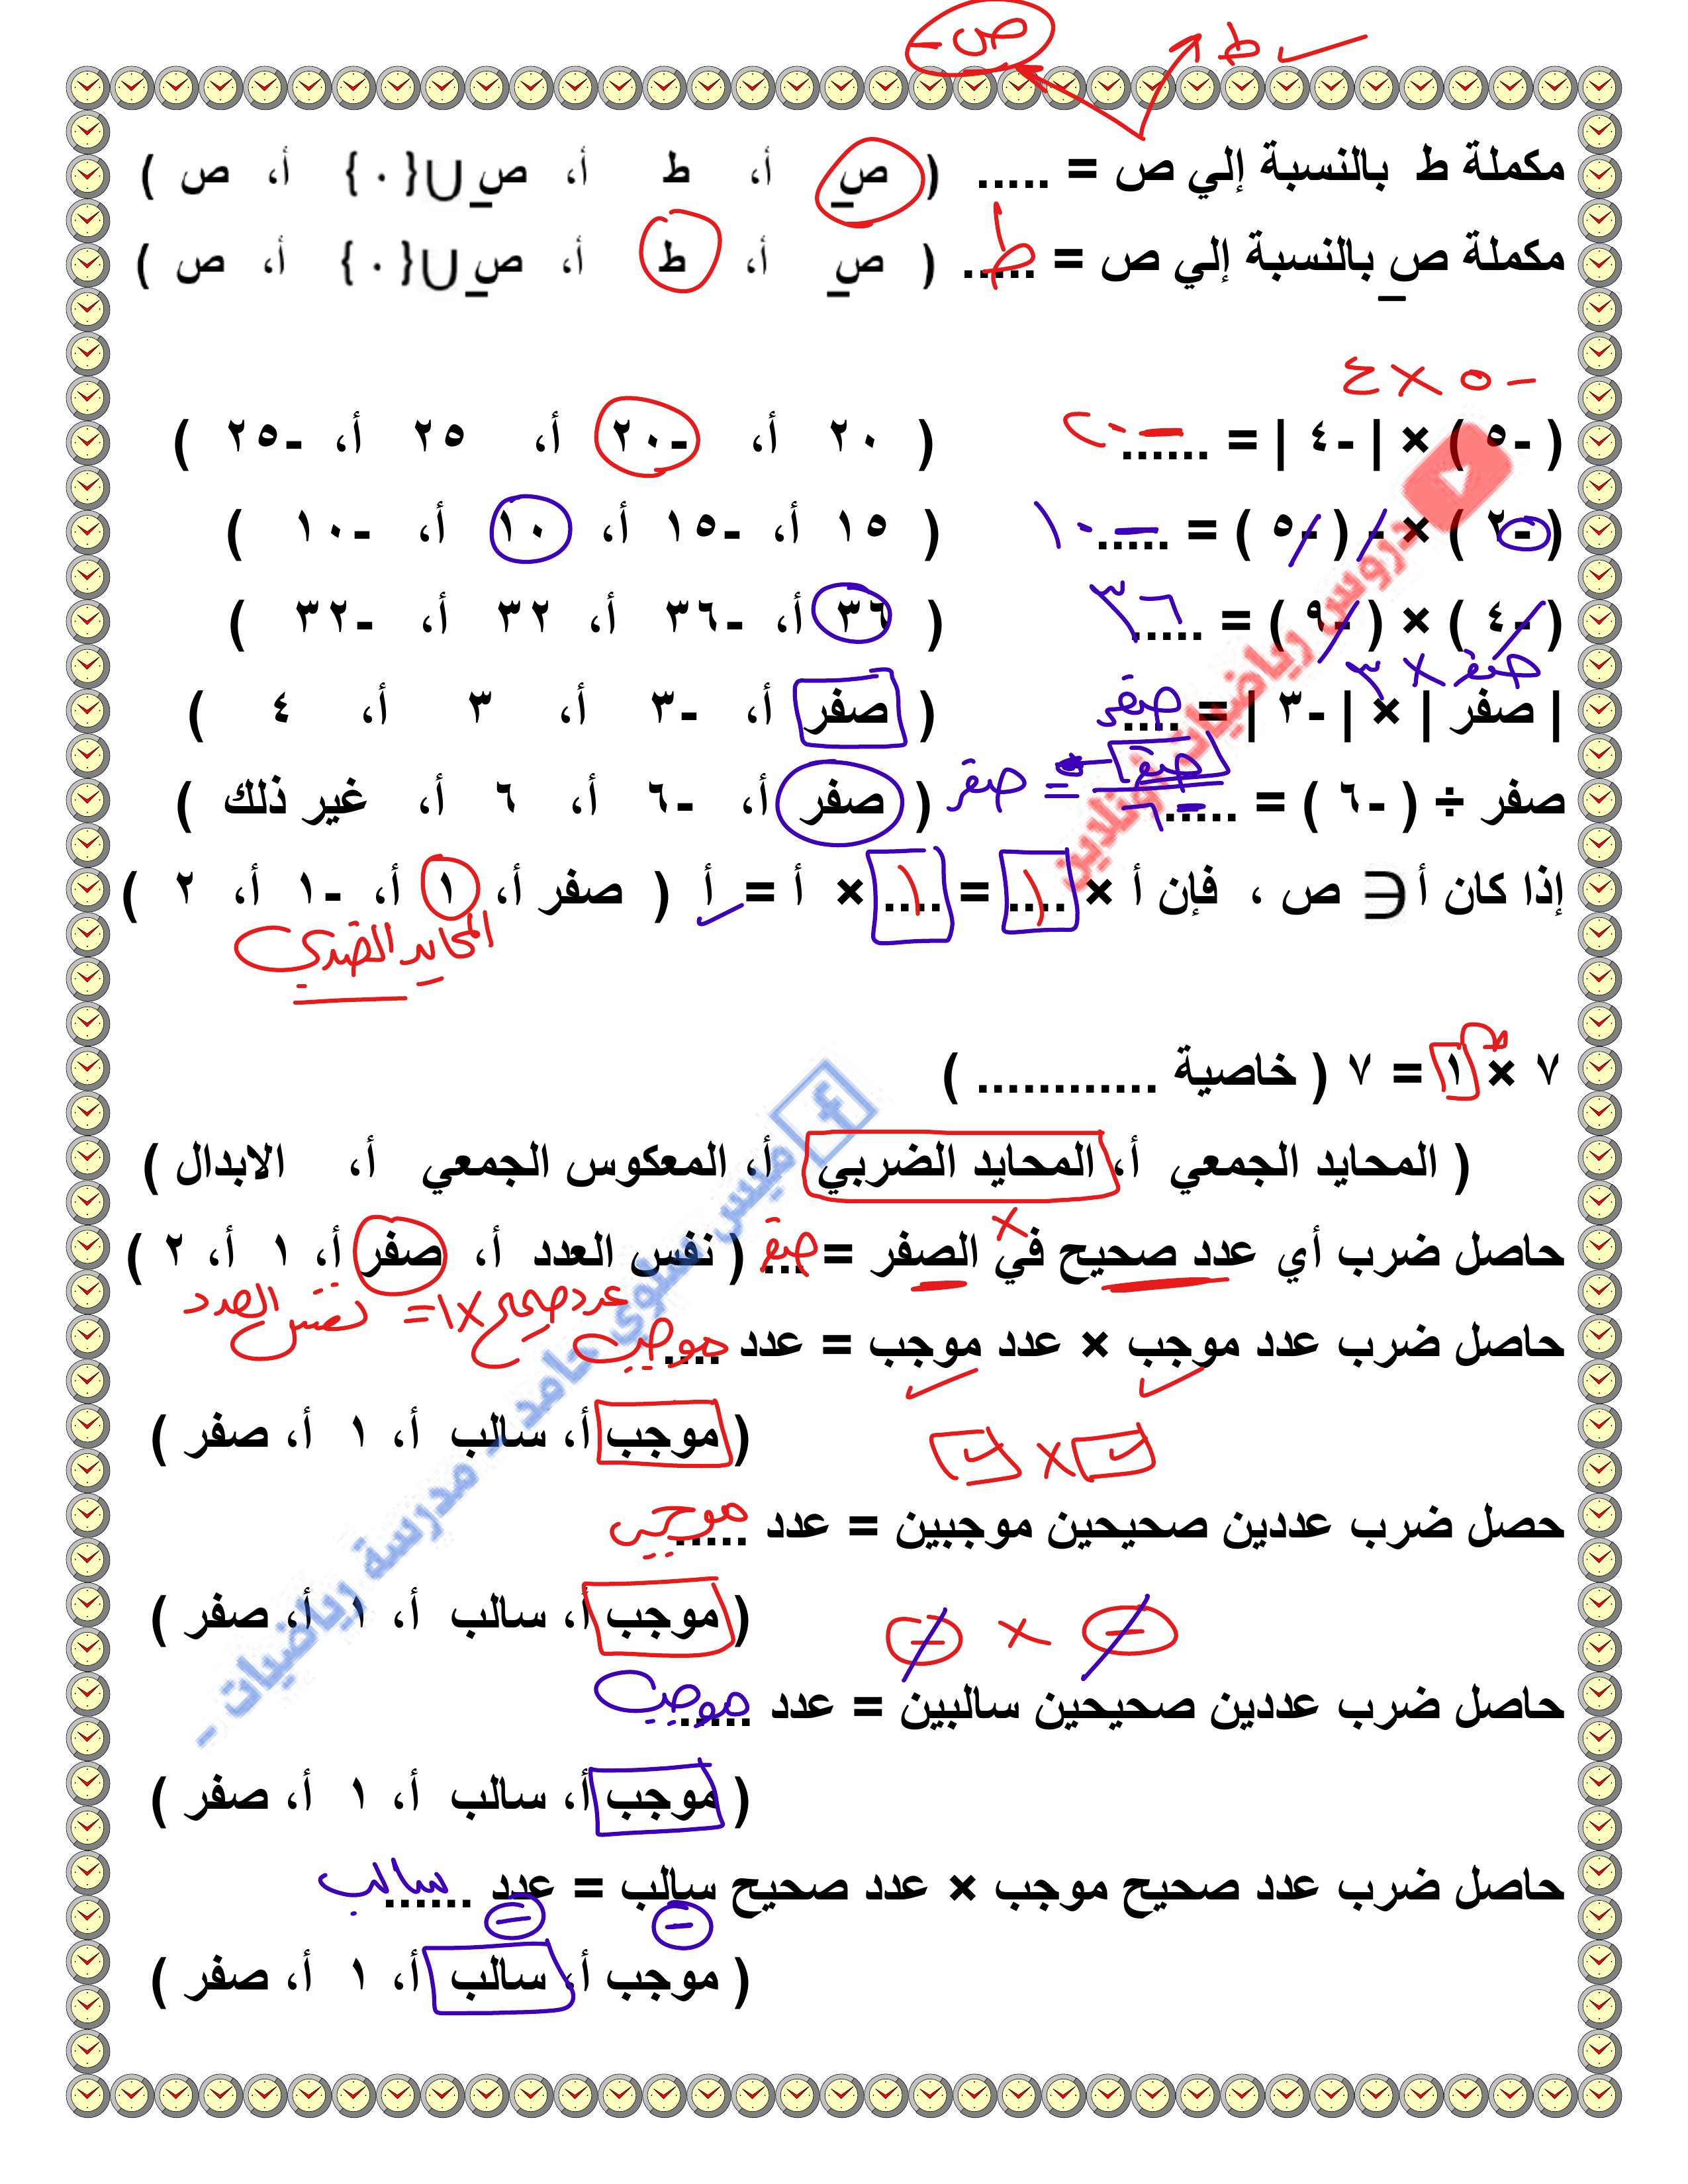 ص- ط
مكملة ط بالنسبة إلي ص = ..... ( ص_ أ، ط أ، ص_ ∪ {٠} أ، ص )
مكملة ص_ بالنسبة إلي ص = ..... ط ( ص_ أ، ط أ، ص_ ∪ {٠} أ، ص )
-٥ × ٤
( -٥ ) × | -٤ | = ...... -٢٠ ( ٢٠ أ، -٢٠ أ، ٢٥ أ، -٢٥ )
( -٢ ) × - ( -٥ ) = ..... -١٠ ( ١٥ أ، -١٥ أ، ١٠ أ، -١٠ )
( -٤ ) × ( -٩ ) = ..... ٣٦ ( ٣٦ أ، -٣٦ أ، ٣٢ أ، -٣٢ )
صفر × ٣
| صفر | × | -٣ | = .... صفر ( صفر أ، -٣ أ، ٣ أ، ٤ )
صفر ÷ ( -٦ ) = ..... صفر / -٦ = صفر ( صفر أ، -٦ أ، ٦ أ، غير ذلك )
إذا كان أ ∈ ص ، فإن أ × .... ١ = .... ١ × أ = أ ( صفر أ، ١ أ، -١ أ، ٢ )
المحايد الضربي
٧ × ١ = ٧ ( خاصية ............ )
( المحايد الجمعي أ، المحايد الضربي أ، المعكوس الجمعي أ، الابدال )
حاصل ضرب أي عدد صحيح في الصفر = ... صفر ( نفس العدد أ، صفر أ، ١ أ، ٢ )
عدد صحيح × ١ = نفس العدد
حاصل ضرب عدد موجب × عدد موجب = عدد .... موجب
( موجب أ، سالب أ، ١ أ، صفر )
حصل ضرب عددين صحيحين موجبين = عدد ..... موجب
( موجب أ، سالب أ، ١ أ، صفر )
- × -
حاصل ضرب عددين صحيحين سالبين = عدد ..... موجب
( موجب أ، سالب أ، ١ أ، صفر )
حاصل ضرب عدد صحيح موجب × عدد صحيح سالب = عدد ...... سالب
- -
( موجب أ، سالب أ، ١ أ، صفر )
دروس رياضيات أونلاين
ميس سلوي حامد - مدرسة رياضيات -